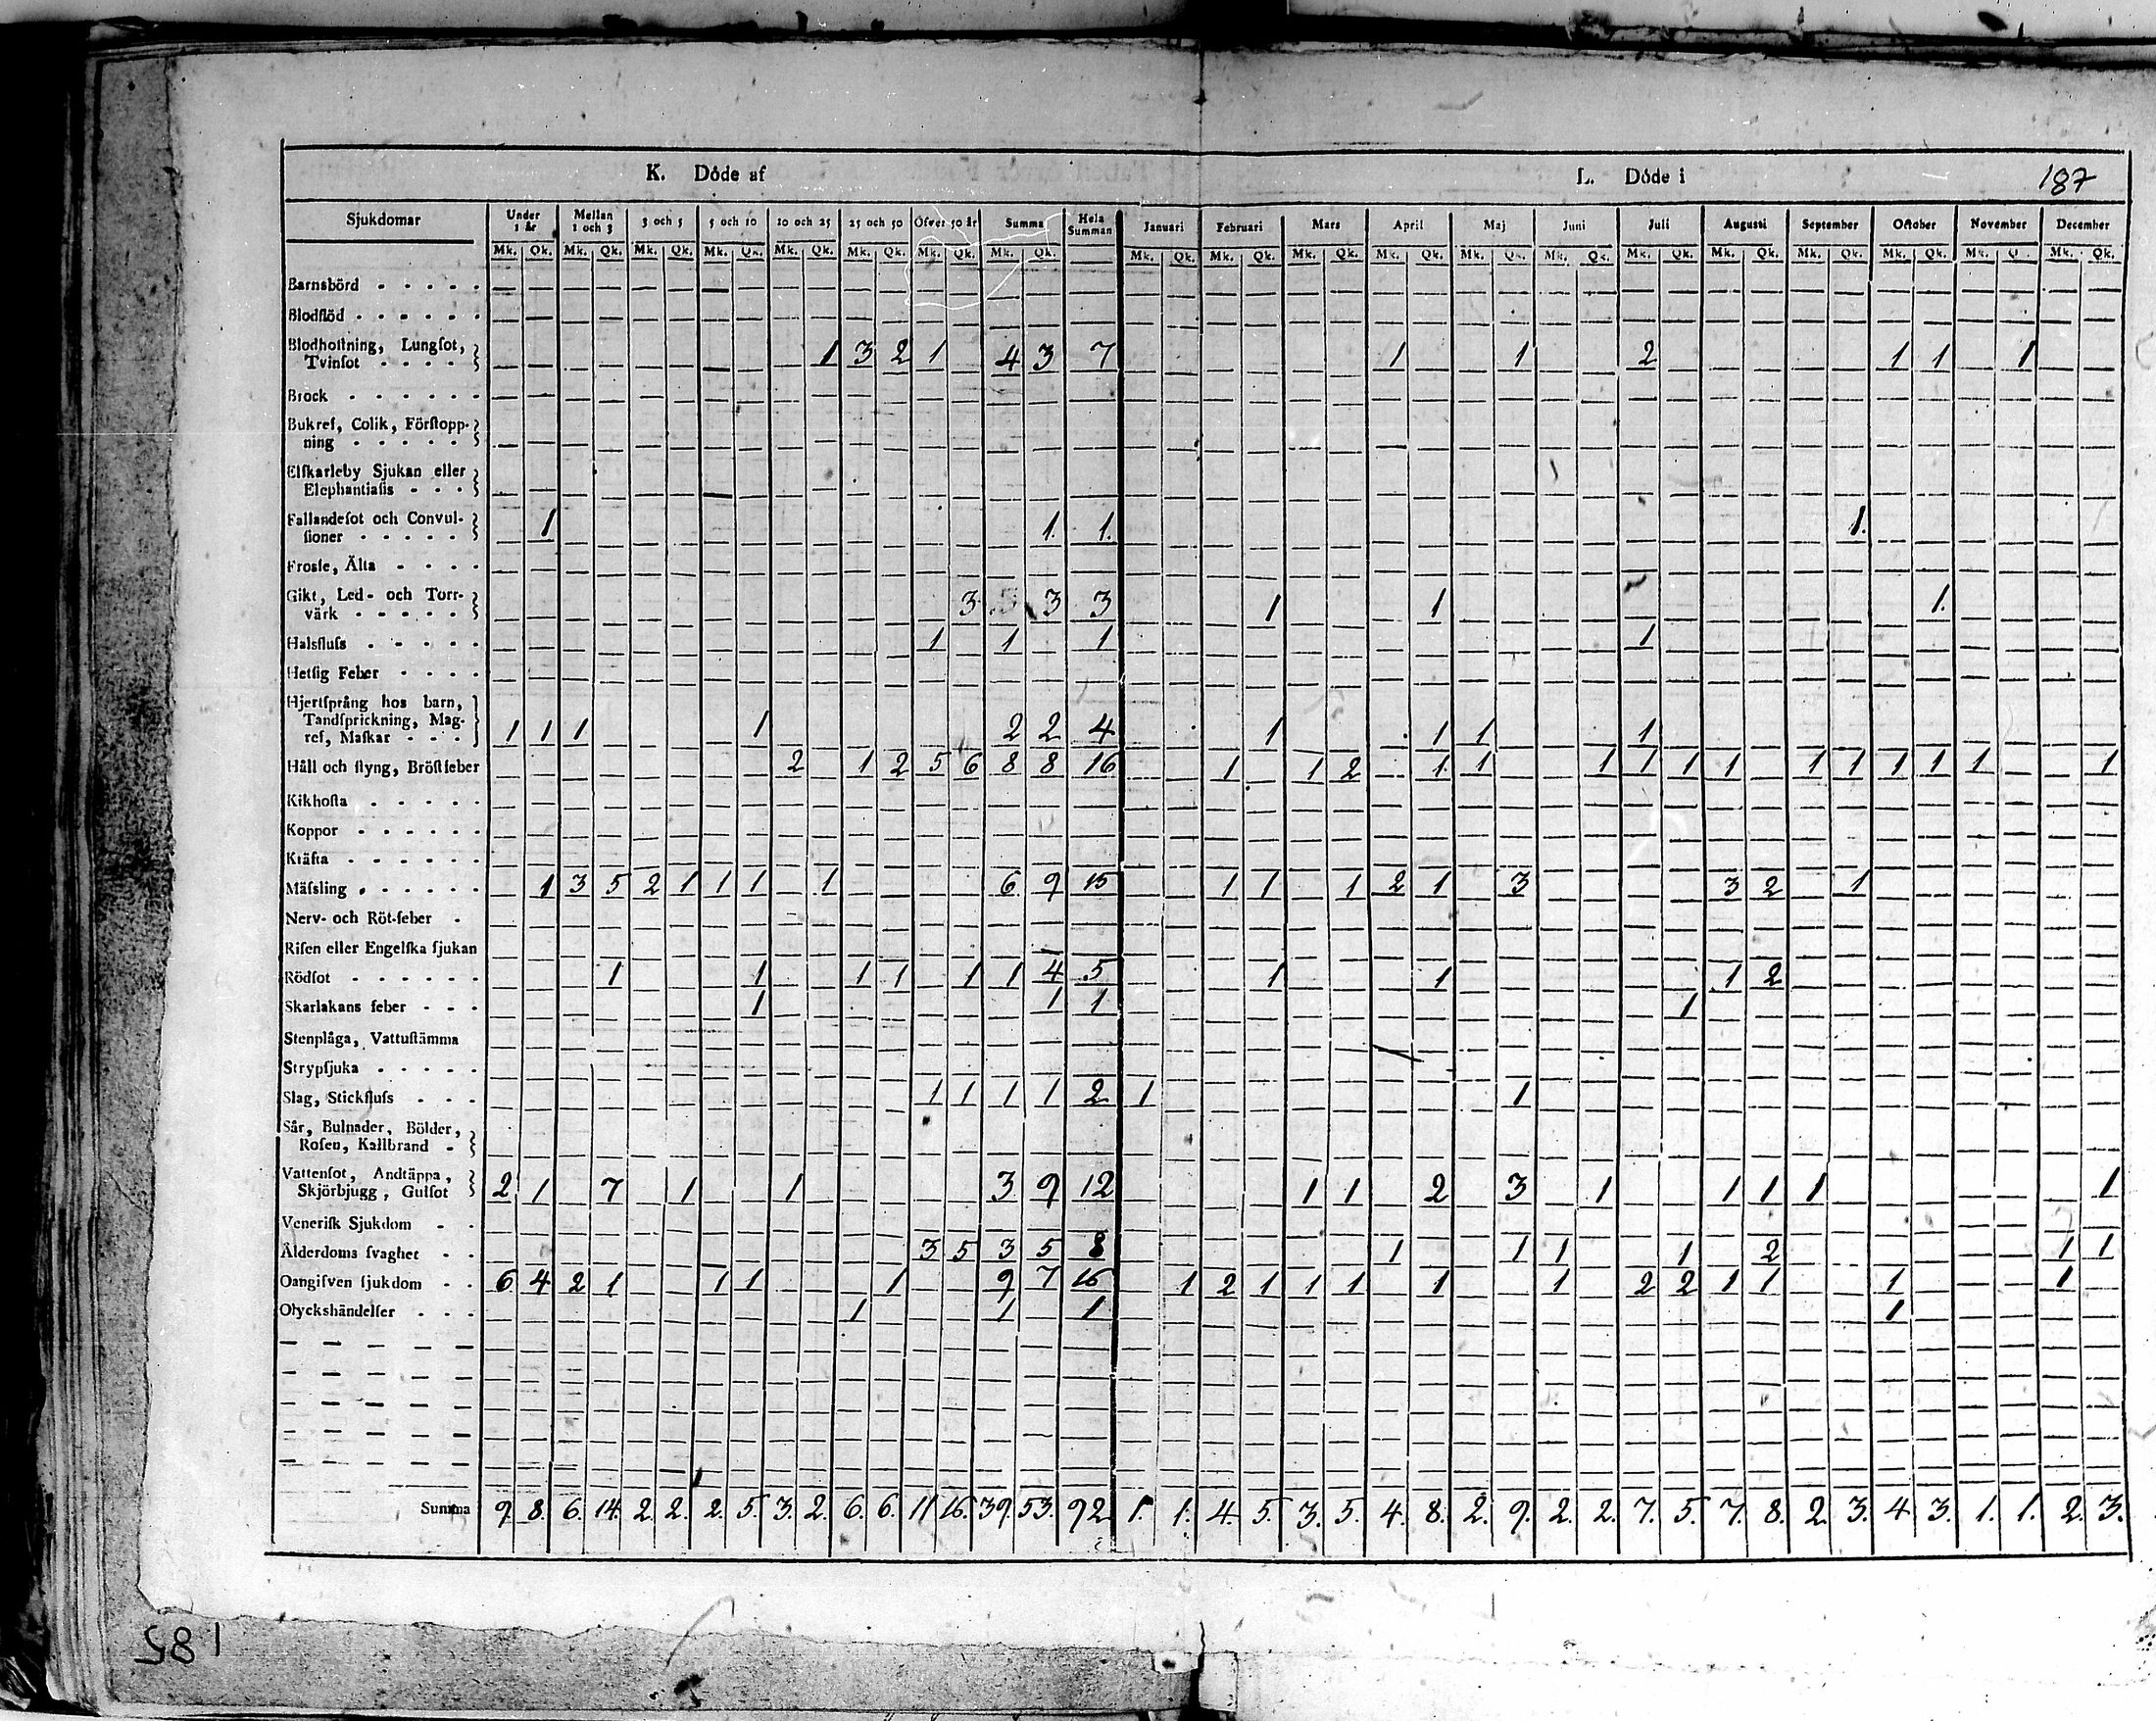 K. Döde af L. Döde i 187
Sjukdomar Under 1 år Mellan 1 och 3 3 och 5 5 och 10 10 och 25 25 och 50 Öfver 50 år Summa Hela Summan Januari Februari Mars April Maj Juni Juli Augusti September October November December
Mk. Qk. Mk. Qk. Mk. Qk. Mk. Qk. Mk. Qk. Mk. Qk. Mk. Qk. Mk. Qk. Mk. Qk. Mk. Qk. Mk. Qk. Mk. Qk. Mk. Qk. Mk. Qk. Mk. Qk. Mk. Qk. Mk. Qk. Mk. Qk. Mk. Mk. Qk.
Barnsbörd
Blodflöd
Blodhoſtning, Lungſot,
Tvinſot 1 3 2 1 4 3 7 1 1 2 1 1 1
Bråck
Bukref, Colik, Förſtopp-
ning
Elſkarleby Sjukan eller
Elephantiaſis
Fallandeſot och Convul-
ſioner 1 1. 1. 1.
Frosſe, Älta
Gikt, Led- och Torr-
värk 3 3 3 1 1 1.
Halsfluſs 1 1 1 1
Hetſig Feber
Hjertſprång hos barn,
Tandſprickning, Mag-
ref, Maſkar 1 1 1 1 2 2 4 1 1 1 1
Håll och ſtyng, Bröſtfeber 2 1 2 5 6 8 8 16 1 1 2 1 1 1 1 1 1 1 1 1 1 1 1
Kikhoſta
Koppor
Kräfta
Mäſsling 1 3 5 2 1 1 1 1 6 9 15 1 1 1 2 1 3 3 2 1
Nerv- och Röt-feber
Riſen eller Engelſka ſjukan
Rödſot 1 1 1 1 1 1 4 5 1 1 1 2
Skarlakans feber 1 1 1 1
Stenplåga, Vattuſtämma
Strypſjuka
Slag, Stickfluſs 1 1 1 1 2 1 1
Sår, Bulnader, Bölder,
Roſen, Kallbrand
Vattenſot, Andtäppa,
Skjörbjugg, Gulſot 2 1 7 1 1 3 9 12 1 1 2 3 1 1 1 1 1
Veneriſk Sjukdom
Ålderdoms ſvaghet 3 5 3 5 8 1 1 1 1 2 1 1
Oangifven ſjukdom 6 4 2 1 1 1 1 9 7 16 1 2 1 1 1 1 1 2 2 1 1 1 1
Olyckshändelſer 1 1 1 1
Summa 9. 8. 6. 14. 2. 2. 2. 5. 3. 2. 6. 6. 11 16. 39. 53. 92 1. 1. 4. 5. 3. 5. 4. 8. 2. 9. 2. 2. 7. 5. 7. 8. 2. 3. 4 3. 1. 1. 2. 3.
185